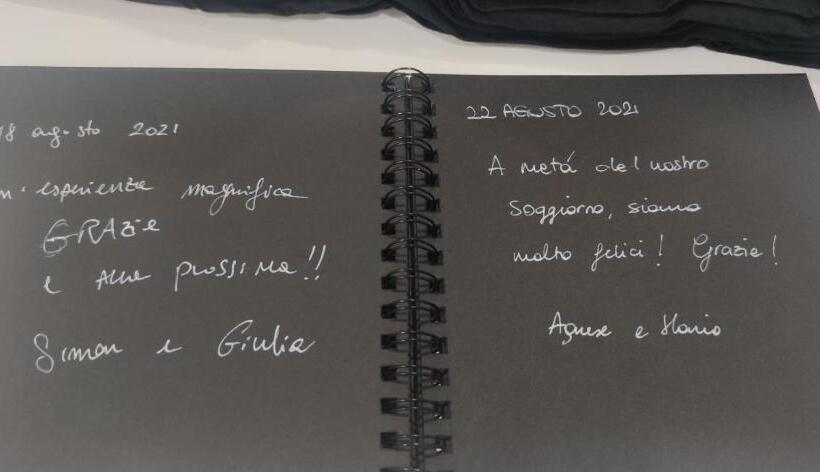 18 agosto 2021
n'esperienza magnifica
GRAZIE
e alla prossima!!
Simon e Giulia
22 AGOSTO 2021
A metá del nostro
soggiorno, siamo
molto felici! Grazie!
Agnese e Ilario